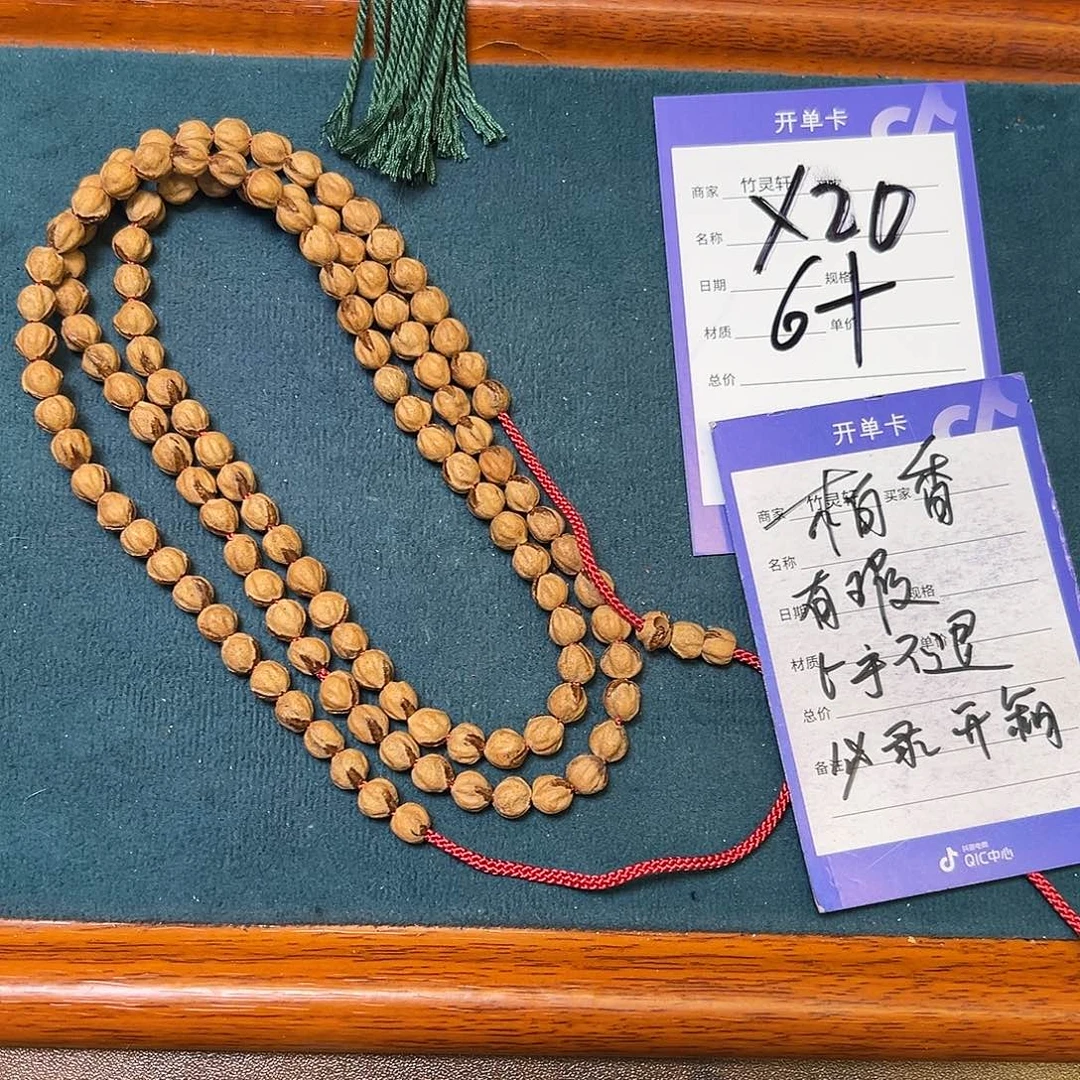 开单卡
商家 竹灵轩
X20
名称
日期 规格
6+
材质 单价
总价
开单卡
商家 竹灵轩 买家
柏香
名称
日期 规格
有瑕
材质 单价
上手不退
总价
必录开箱
备注
抖音电商
QIC中心